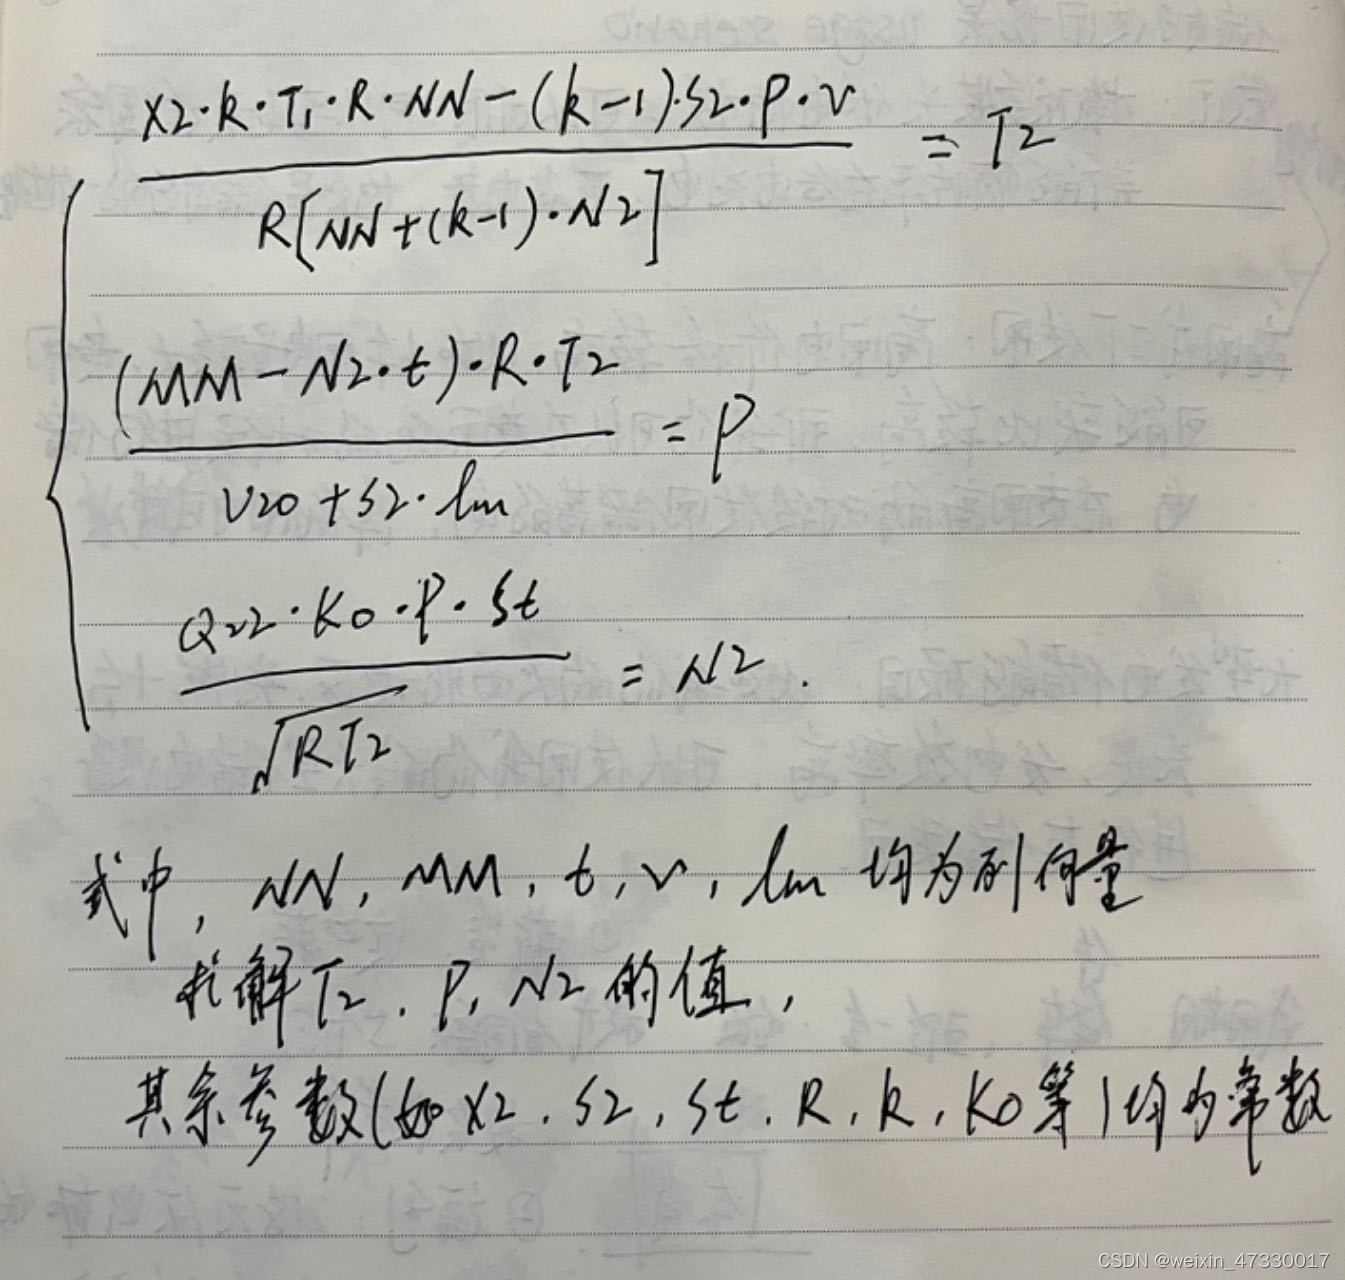 X2·k·T1·R·NN-(k-1)·S2·P·v
= T2
R[NN+(k-1)·N2]
(MM-N2·t)·R·T2
= P
V20+S2·lm
Q22·K0·P·St
= N2.
√RT2
式中, NN, MM, t, v, lm 均为列向量
求解T2. P, N2的值,
其余参数(如X2. S2, St. R, k, K0等)均为常数
CSDN @weixin_47330017